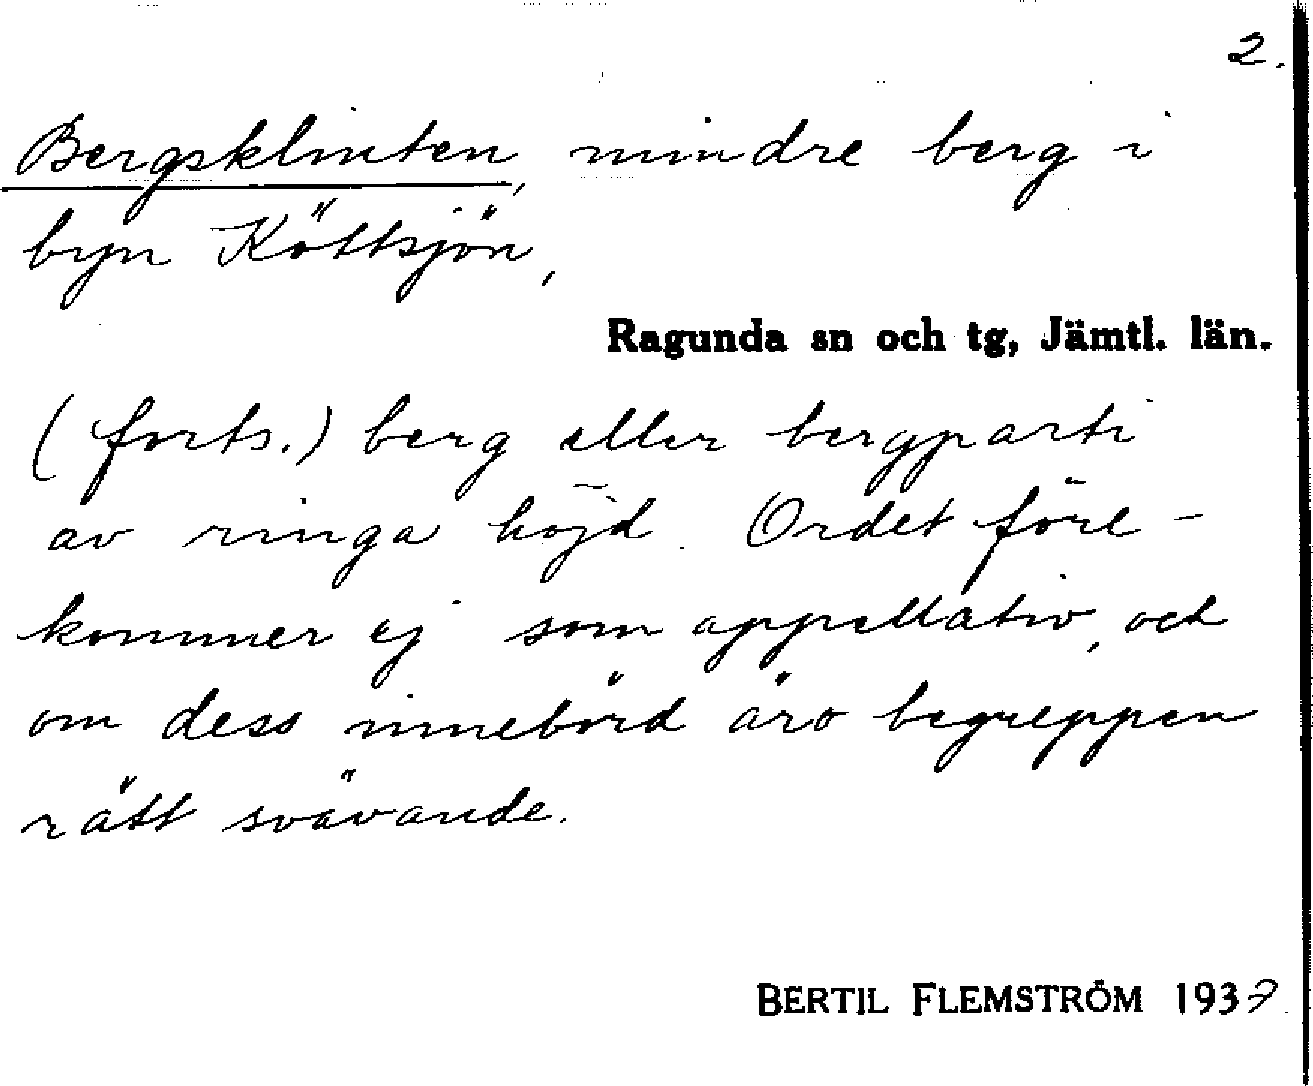 2.
Bergsklinten, mindre berg i
byn Köttsjön,
Ragunda sn och tg, Jämtl. län.
(forts.) berg eller bergparti
av ringa höjd. Ordet före-
kommer ej som appellativ, och
om dess innebörd äro begreppen
rätt svävande.
BERTIL FLEMSTRÖM 1937